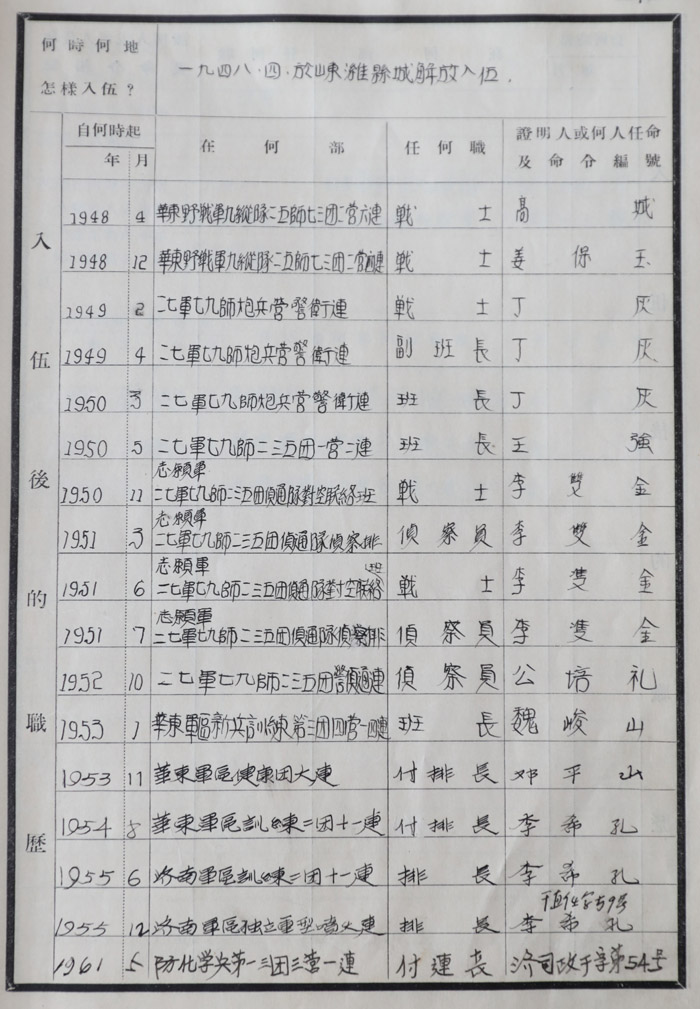 何時何地
怎樣入伍？
一九四八·四·放山東濰縣城解放入伍.
入伍後的職歷
自何時起
年 月
在何部
任何職
證明人或何人任命
及命令編號
1948 4 華東野戰軍九縱隊二五師七三团二營六連 戰士 高城
1948 12 華東野戰軍九縱隊二五師七三团二營連 戰士 姜保玉
1949 2 二七軍七九師炮兵營警衛連 戰士 丁灰
1949 4 二七軍七九師炮兵營警衛連 副班長 丁灰
1950 3 二七軍七九師炮兵營警衛連 班長 丁灰
1950 5 二七軍七九師二三五团一营二連 班長 王強
志願軍
1950 11 二七軍七九師二三五团偵通隊對空联络班 戰士 李雙金
志願軍
1951 3 二七軍七九師二三五团偵通隊偵察排 偵察員 李雙金
志願軍
1951 6 二七軍七九師二三五团偵通隊對空联络 戰士 李雙金
志願軍
1951 7 二七軍七九師二三五团偵通隊偵察排 偵察員 李雙金
1952 10 二七軍七九師二三五团警偵通連 偵察員 公培礼
1953 1 華東軍區新兵訓練東第三团四营一四連 班長 魏峻山
1953 11 華東軍區健康团大連 付排長 邓平山
1954 8 華東軍區訓練東二团十一連 付排長 李希孔
1955 6 济南軍區訓練東二团十一連 排長 李希孔
1955 12 济南軍區独立重型喷火連 排長 李希孔
1961 5 防化学央第一三团三营一連 付連長 济司政干字第54号